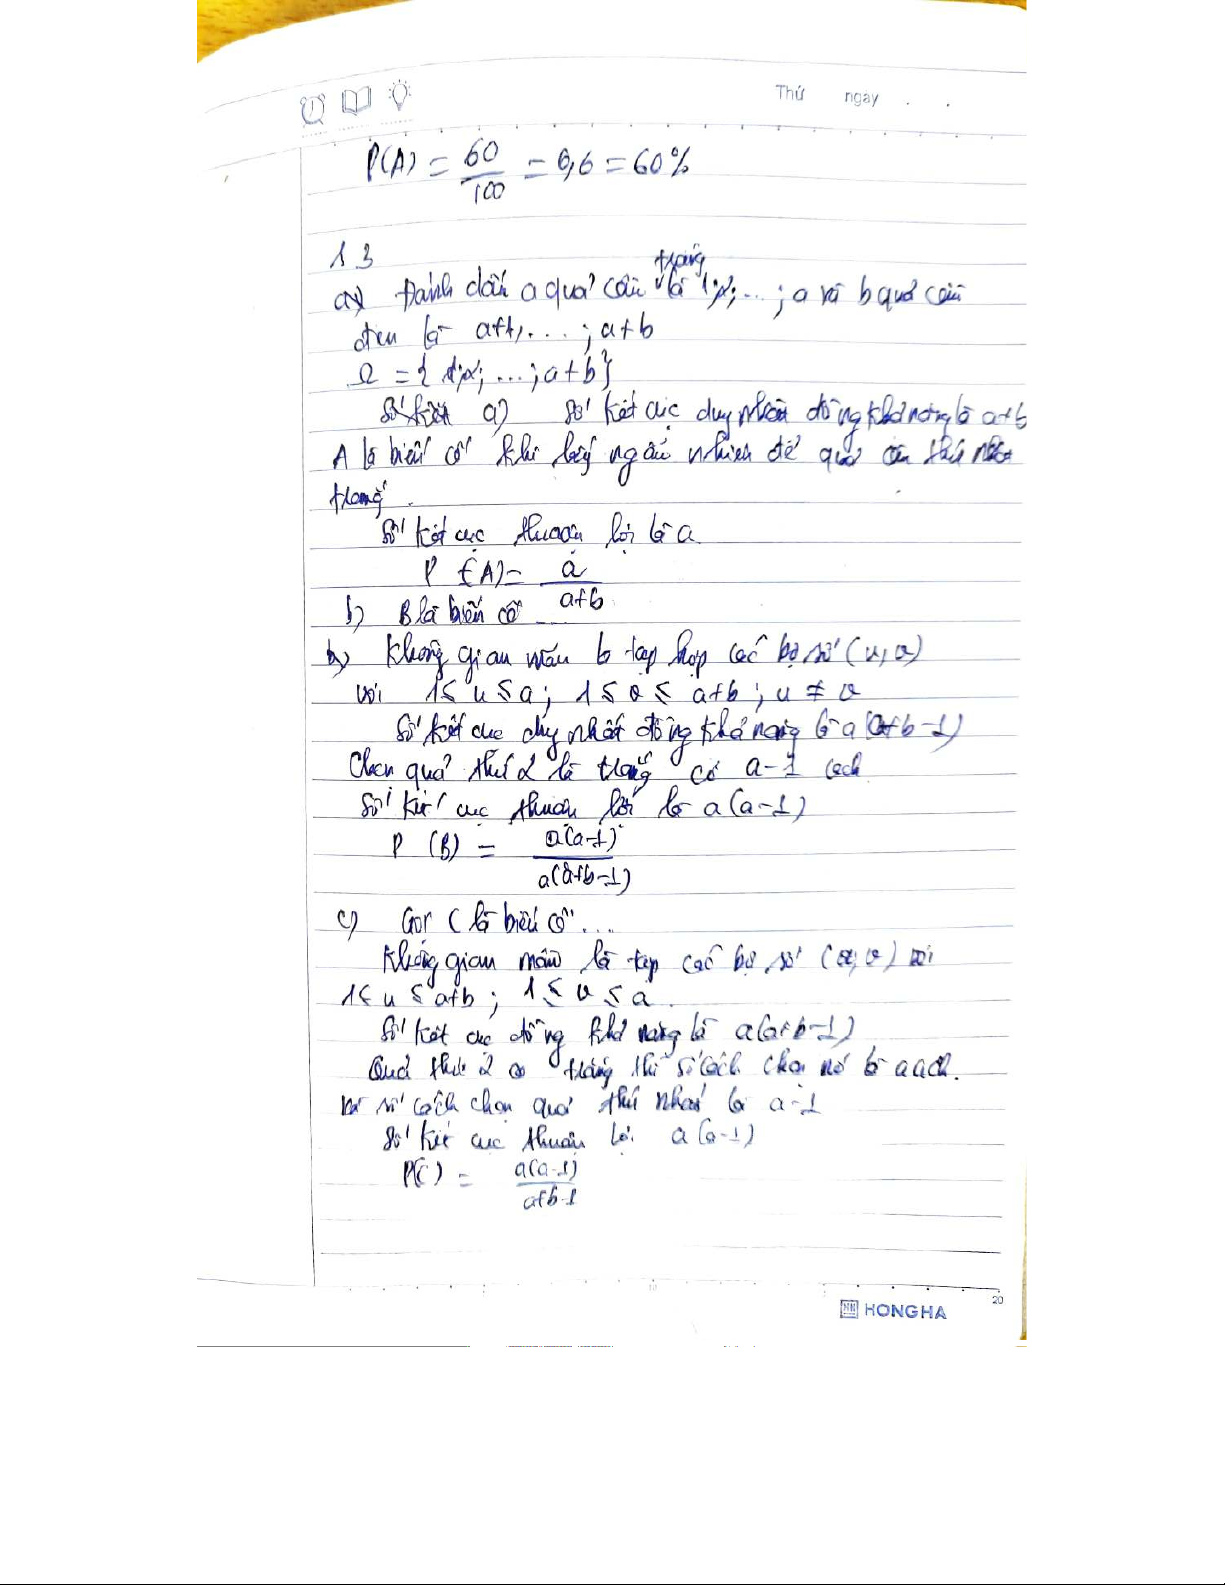 Thứ ngày . .
P(A) = 60/100 = 0,6 = 60%
1.3
a) Đánh dấu a quả cầu trắng là 1;2;...; a và b quả cầu
đen là a+1,...; a+b
Ω = {1;2; ...; a+b}
a) Số kết cục duy nhất đồng khả năng là a+b
A là biến cố khi lấy ngẫu nhiên để quả cầu thứ nhất
trắng.
Số kết cục thuận lợi là a
P (A) = a/(a+b)
b) B là biến cố
b) Không gian mẫu là tập hợp các bộ số (u, v)
với 1 ≤ u ≤ a; 1 ≤ v ≤ a+b; u ≠ v
Số kết cục duy nhất đồng khả năng là a(a+b-1)
Chọn quả thứ 2 là trắng có a-1 cách
Số kết cục thuận lợi là a(a-1)
P (B) = a(a-1)/a(a+b-1)
c) Gọi C là biến cố...
Không gian mẫu là tập các bộ số (u, v) với
1 ≤ u ≤ a+b; 1 ≤ v ≤ a.
Số kết cục đồng khả năng là a(a+b-1)
Quả thứ 2 trắng thì số cách chọn nó là a cách.
số cách chọn quả thứ nhất là a-1
Số kết cục thuận lợi a(a-1)
P(C) = a(a-1)/a+b-1
20
HONG HA